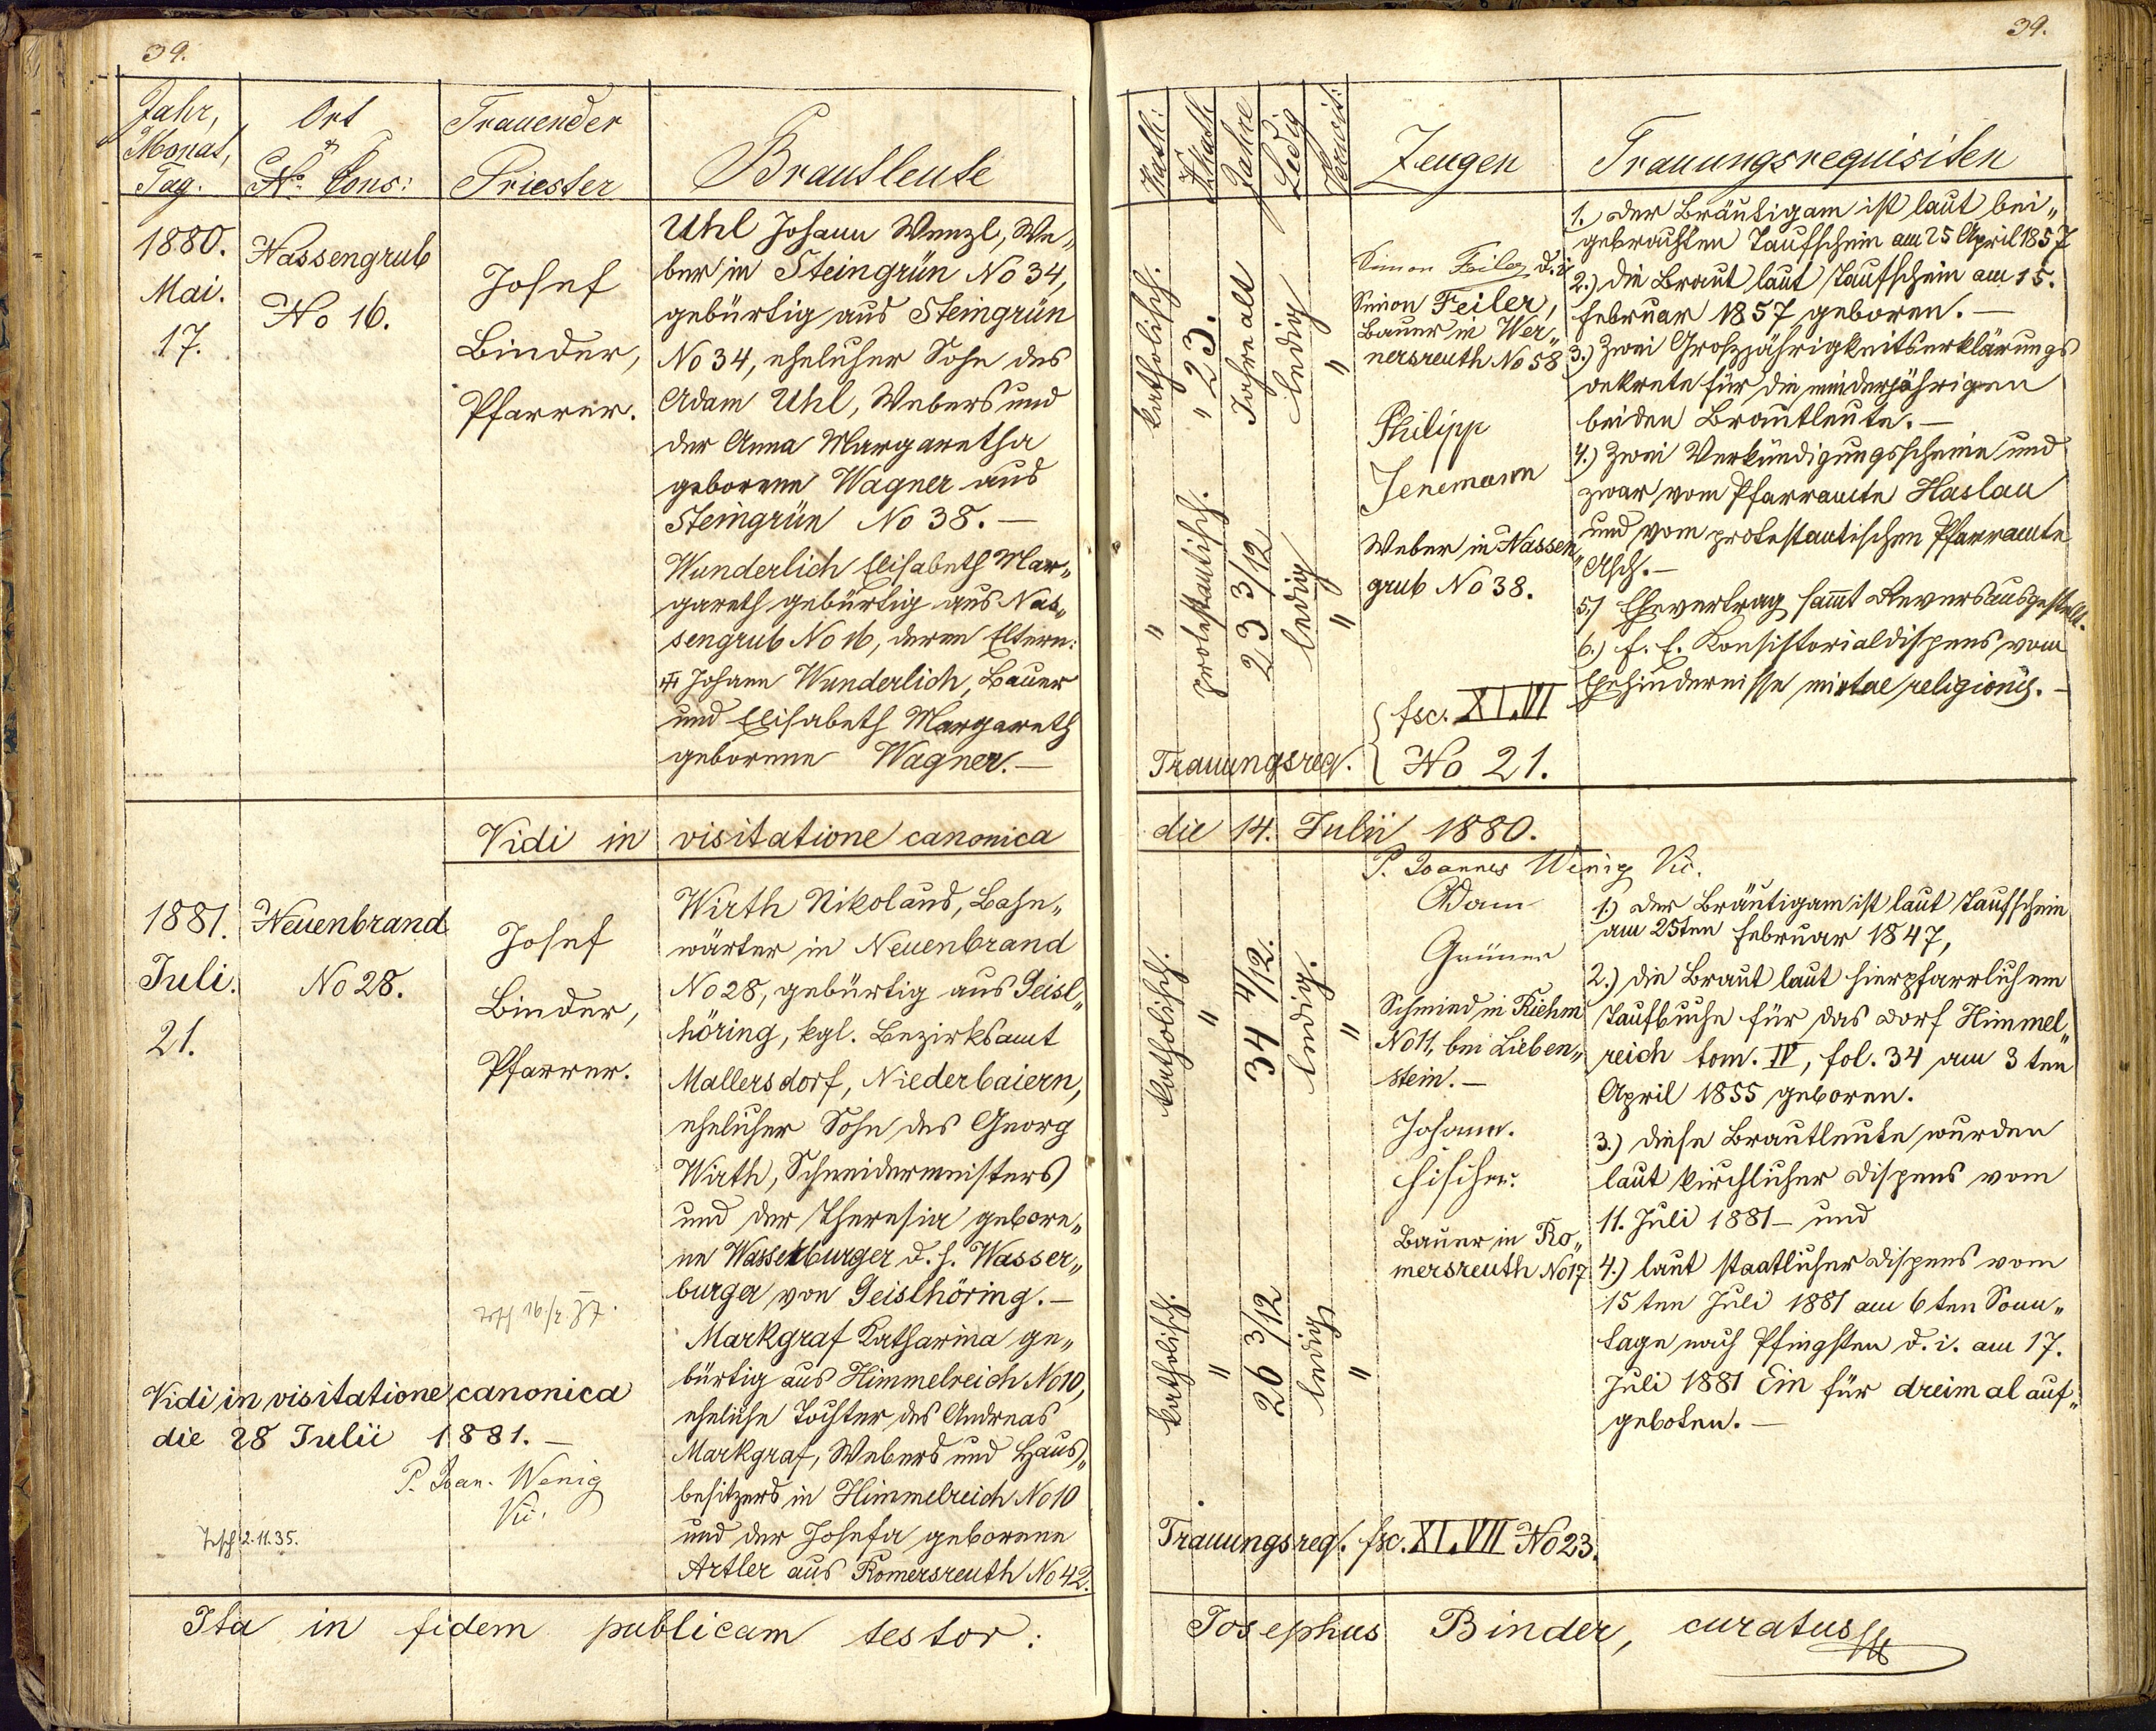 39.
Jahr,
Monat,
Tag.
Ort
&
No Cons:
Trauender
Priester
Brautleute
1880.
Mai.
17.
Nassengrub
No 16.
Josef
Binder,
Pfarrer.
Uhl Johann Wenzl, We„
ber in Steingrün No 34,
gebürtig aus Steingrün
No 34, ehelicher Sohn des
Adam Uhl, Webers und
der Anna Margaretha
geborene Wagner aus
Steingrün No 38. —
Wunderlich Elisabeth Mar„
gareth gebürtig aus Nas„
sengrub No 16, deren Eltern:
Johann Wunderlich, Bauer
und Elisabeth Margareth
geborene Wagner. —
Vidi in visitatione canonica
1881.
Juli.
21.
Neuenbrand
No 28.
Josef
Binder,
Pfarrer.
Wirth Nikolaus, Bahn„
wärter in Neuenbrand
No 28, gebürtig aus Geisl„
höring, kgl. Bezirksamt
Mallersdorf, Niederbaiern,
ehelicher Sohn des Georg
Wirth, Schneidermeisters
und der Theresia gebore„
ne Wassetburger d. h. Wasser„
burger von Geislhöring. —
Markgraf Katharina ge„
bürtig aus Himmelreich No 10,
eheliche Tochter des Andreas
Markgraf, Webers und Haus„
besitzers in Himmelreich No 10
und der Josefa geborene
Artler aus Romersreuth No 42.
Vidi in visitatione canonica
die 28 Julii 1881. —
P. Joan. Wenig
Vic.
2.11.35.
Ita in fidem publicam testor:
39.
Kath:
Akath
Jahre
Ledig
Verwit:
Zeugen
Trauungsrequisiten
katholisch.
"
" 23.
Jahre alt
ledig
"
protestantisch.
23 3/12
ledig
"
Simon Feiler, d. i.
Simon Feiler,
Bauer in Wer„
nersreuth No 58
Philipp
Jenemann
Weber in Nassen„
grub No 38.
Trauungsreq. fsc. XI.VI
No 21.
1. Der Bräutigam ist laut bei„
gebrachten Taufschein am 25 April 1857
2.) Die Braut laut Taufschein am 15.
Februar 1857 geboren. —
3.) Zwei Großjährigkeitserklärungs
dekrete für die minderjährigen
beiden Brautleute. —
4.) Zwei Verkündigungsscheine und
zwar vom Pfarramte Haslau
und vom protestantischen Pfarramte
Asch. —
5.) Ehevertrag sammt Revers ausgestellt.
6.) f. e. Konsistorialdispens vom
Ehehindernisse mixtae religionis. —
die 14. Julii 1880.
P. Joannes Wenig Vic.
katholisch.
"
34 4/12.
ledig.
"
katholisch.
"
26 3/12
ledig
"
Adam
Grüner
Schmied in Riehm
No 11, bei Lieben„
stein. —
Johann.
Fischer.
Bauer in Ro„
mersreuth No 17
1.) Der Bräutigam ist laut Taufschein
am 25ten Februar 1847,
2.) Die Braut laut hierpfarrlichem
Taufbuche für das Dorf Himmel„
reich tom. IV, fol. 34 am 3 ten
April 1855 geboren.
3.) Diese Brautleute wurden
laut kirchlicher Dispens vom
11. Juli 1881 — und
4.) laut staatlicher Dispens vom
15 ten Juli 1881 am 6 ten Sonn„
tage nach Pfingsten d. i. am 17.
Juli 1881 Ein für dreimal auf„
geboten. —
Trauungsreq. fsc. XI.VII No 23.
Josephus Binder, curatus